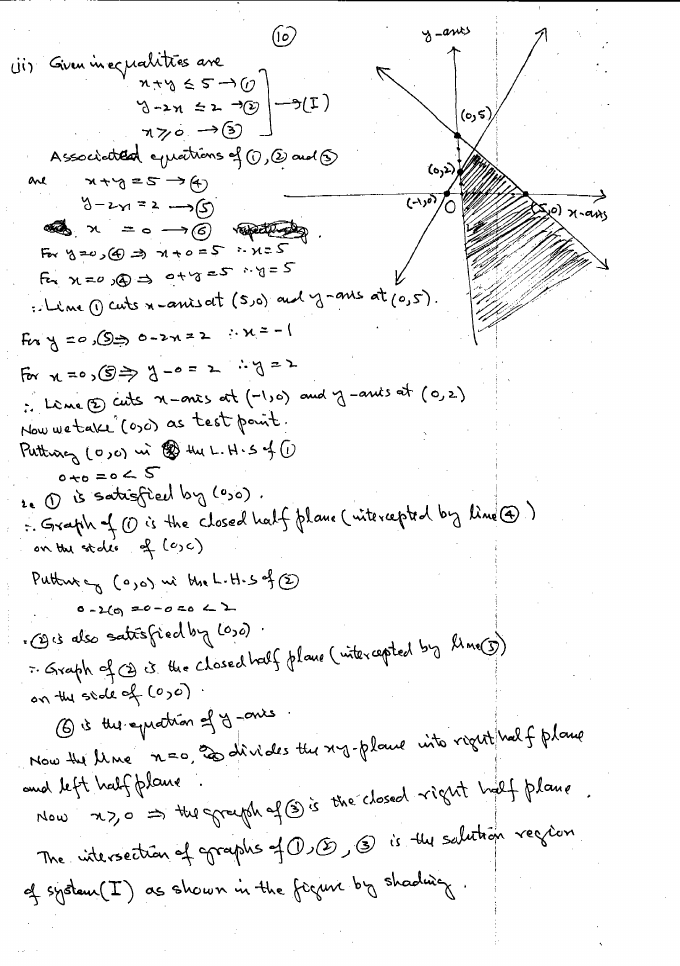 (10)
(ii) Given inequalities are
x+y ≤ 5 → ①
y-2x ≤ 2 → ②
x ≥ 0 → ③
→ (I)
Associated equations of ①, ② and ③
are x+y = 5 → ④
y-2x = 2 → ⑤
x = 0 → ⑥
For y=0, ④ ⇒ x+0=5 ∴ x=5
For x=0, ④ ⇒ 0+y=5 ∴ y=5
∴ Line ① cuts x-axis at (5,0) and y-axis at (0,5).
For y=0, ⑤ ⇒ 0-2x=2 ∴ x=-1
For x=0, ⑤ ⇒ y-0=2 ∴ y=2
∴ Line ② cuts x-axis at (-1,0) and y-axis at (0,2)
Now we take (0,0) as test point.
Putting (0,0) in the L.H.S of ①
0+0=0<5
i.e ① is satisfied by (0,0).
∴ Graph of ① is the closed half plane (intercepted by line ④)
on the side of (0,0)
Putting (0,0) in the L.H.S of ②
0-2(0)=0-0=0<2
∴ ② is also satisfied by (0,0).
∴ Graph of ② is the closed half plane (intercepted by line ⑤)
on the side of (0,0).
⑥ is the equation of y-axis.
Now the line x=0, divides the xy-plane into right half plane
and left half plane.
Now x≥0 ⇒ the graph of ③ is the closed right half plane.
The intersection of graphs of ①, ②, ③ is the solution region
of system (I) as shown in the figure by shading.
y-axis
(0,5)
(0,2)
(-1,0)
O
(5,0) x-axis